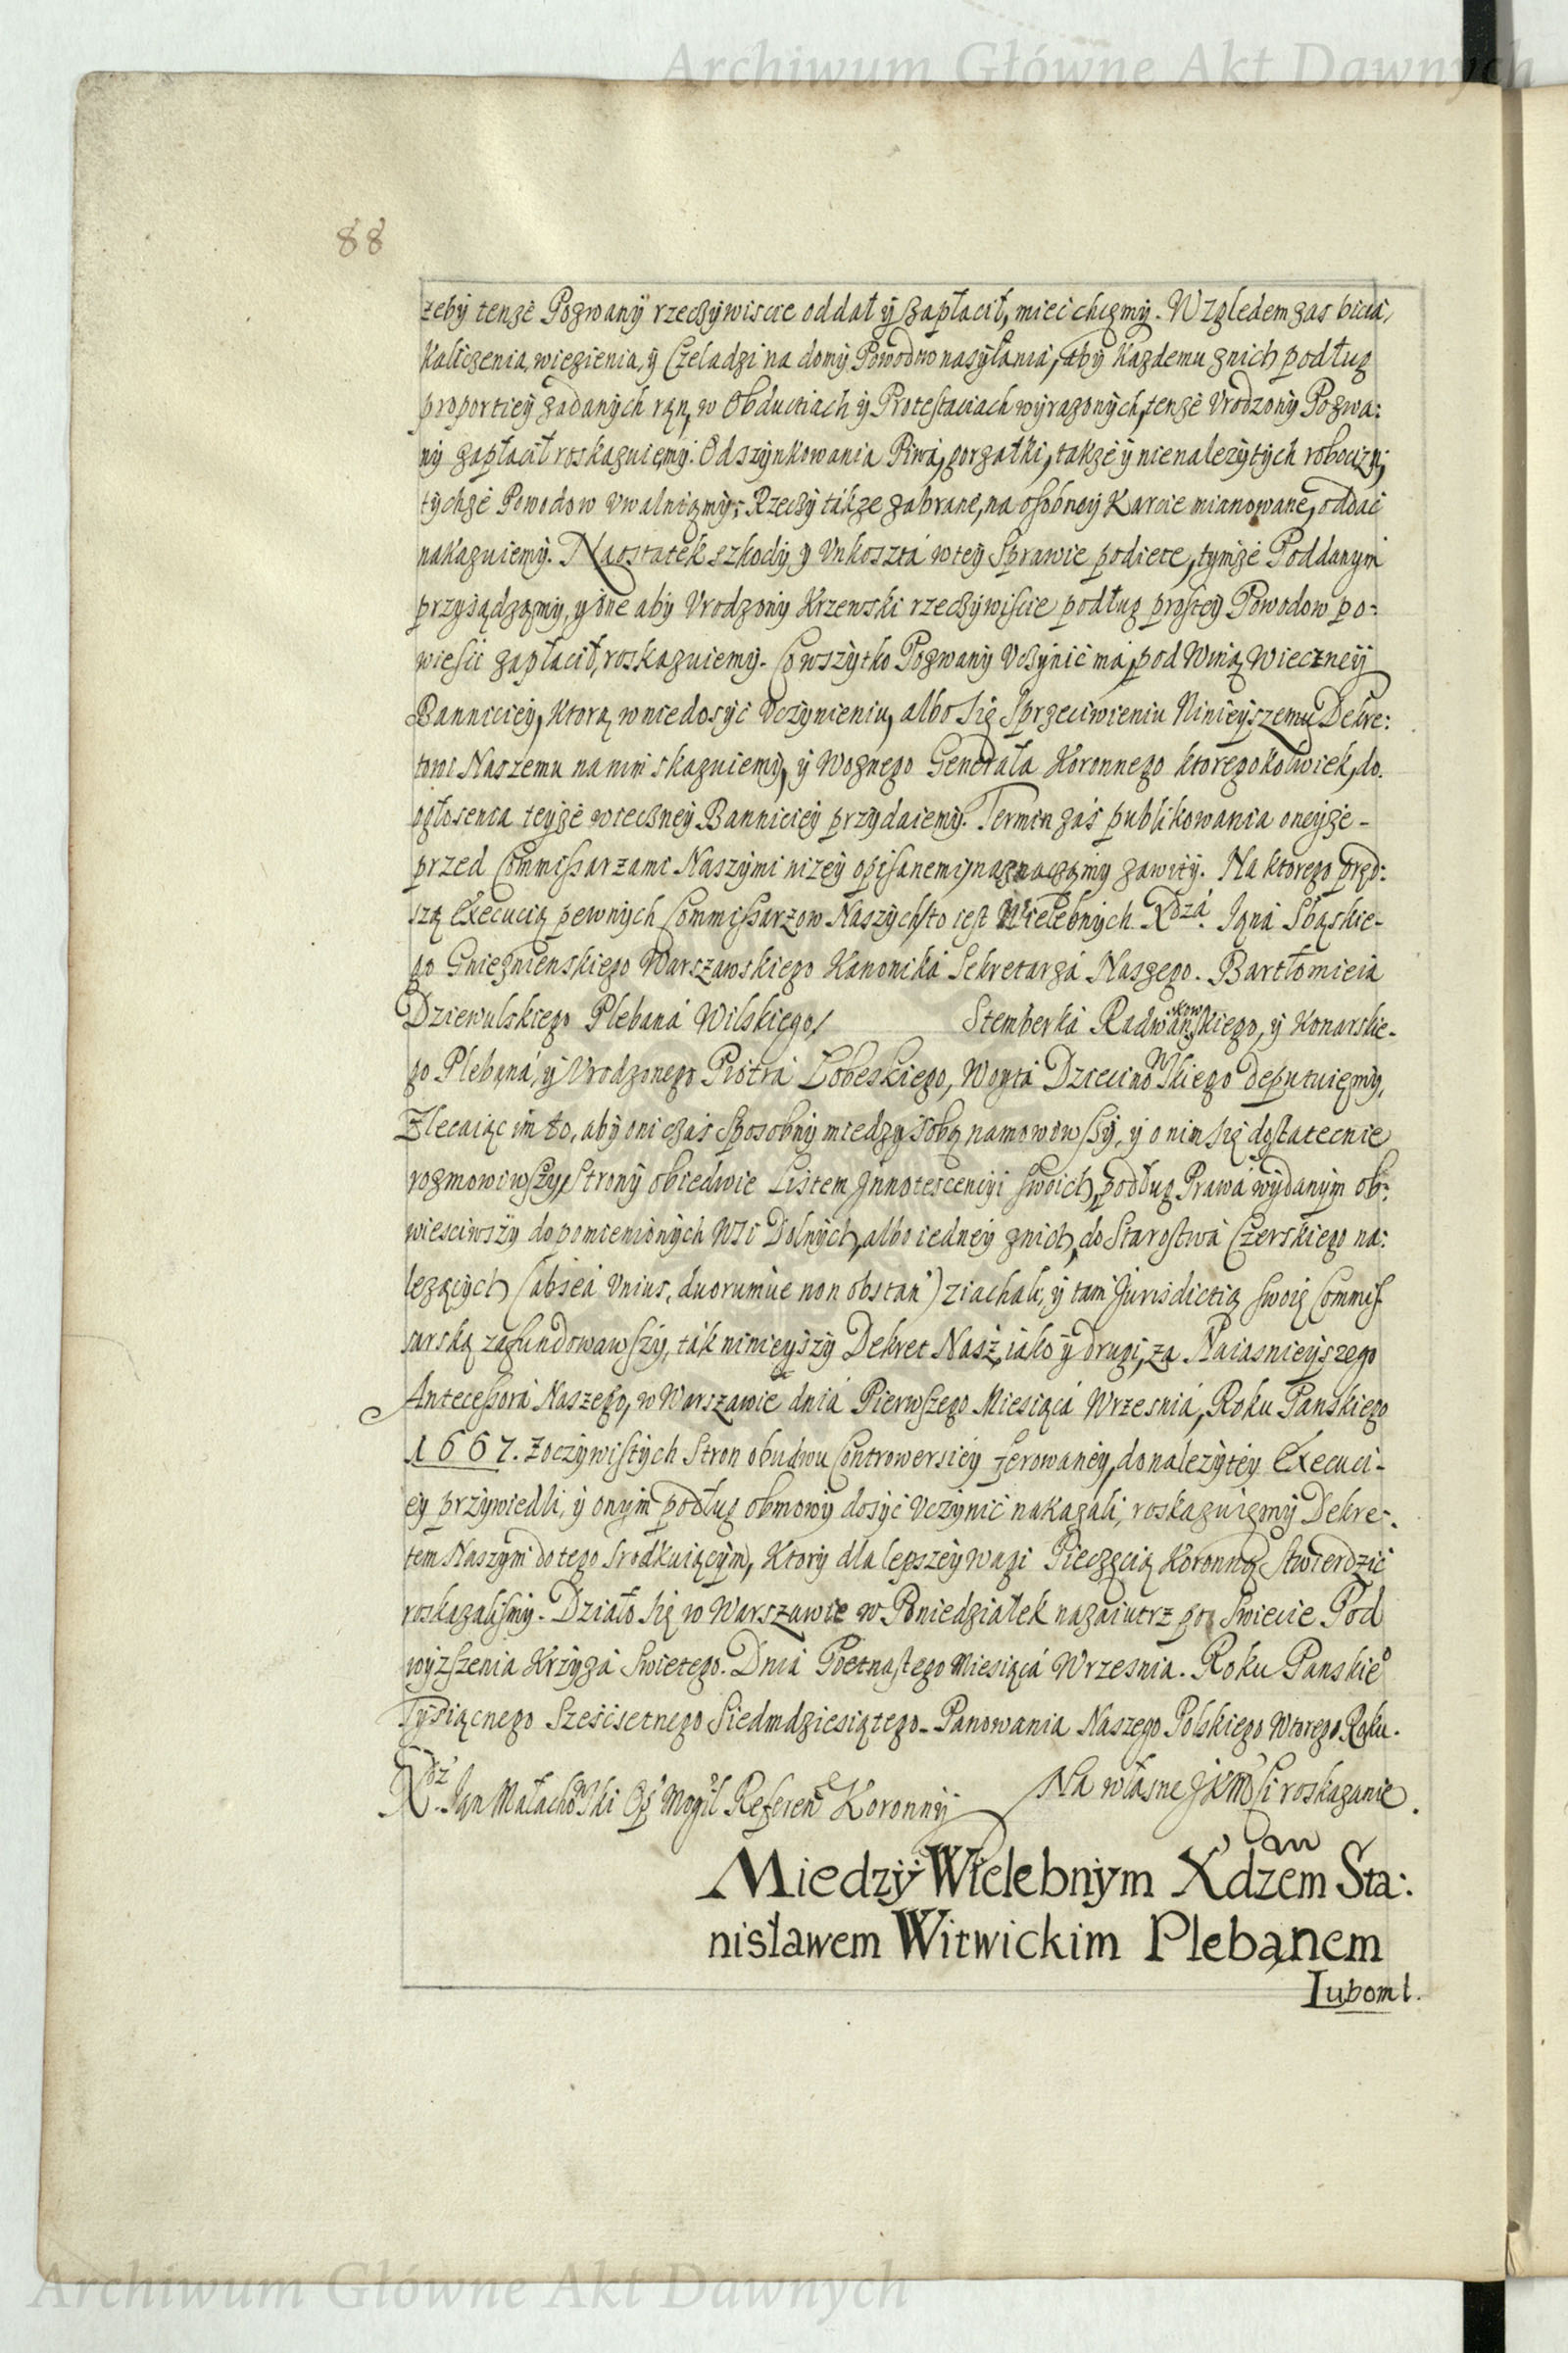 Archiwum Główne Akt Dawnych
88
żeby tenże Pozwany rzeczywiscie oddał y zapłacił, mieć chcęmy. Względem zas bicia,
kaliczenia, więzienia, y Czeladzi na domy Powodow nasyłania, aby każdemu znich podług
proportiey zadanych ran, w Obductiach y Protestaciach wyrażonych, tenże Vrodzony Pozwa:
ny zapłacił roskazuięmy. Od szynkowania Piwa, gorzałki, także y nienależytych robocizn,
tychże Powodow vwalniamy; Rzeczy tákże zabrane, na osobney Karcie mianowane, oddać
nakazuiemy. Naostatek szkody y Vnkosztá wtey Sprawie podięte, tymże Poddanym
przysądzamy, y one aby Vrodzony Krzewski rzeczywiście podług prostey Powodow po-
wieści zapłacił, roskazuiemy. Co wszytko Pozwany Vczynić ma, pod Winą Wieczney
Banniciey, ktorą w niedosyć Vczynieniu, albo się Sprzeciwieniu Ninieyszemu Dekre:
towi Naszemu na nim skazuiemy, y Woznego Generała Koronnego ktoregokolwiek, do
ogłosenia teyże wieczney Banniciey przydaiemy. Termin zaś publikowania oneyże -
przed Commissarzami Naszymi niżey opisanemi, naznaczamy zawity. Na ktorego pręd:
szą Execucią pewnych Commissarzow Naszych, to iest Wielebnych Xdza. Iana Sbąskie-
go Gnieznienskiego Warszawskiego Kanoniká Sekretarzá Naszego. Bartłomieia
Dziewulskiego Plebaná Wilskiego, Stemberka Radwankowskiego, y Konarskie-
go Plebaná, y Vrodzonego Piotra Lobeskiego, Woyta Dziecinowskiego deputuięmy,
Zlecaiąc im to, aby oni czas sposobny miedzy sobą namowiwszy, y o nim się dostatecnie
rozmowiwszy, Strony obiedwie Listem Innotescenciyi swoich, podług Prawá wydanym ob-
wiesciwszy do pomienionych Wsi Dolnych, albo iedney znich, do Starostwá Czerskiego na:
leżących (absẽa Vnius, duorumue non obstañ) ziachali, y tam Jurisdictią swoię Commis-
sarską zafundowawszy, ták ninieyszy Dekret Nasz, iako y drugi, za Naiasnieyszego
Antecessora Naszego, w Warszawie dniá Pierwszego Miesiącá Wrzesniá, Roku Panskiego
1667. z oczywistych Stron obudwu Controwersiey ferowaney, do należytey Execuci-
ey przywiedli, y onym podług obmowy dosyć Vczynić nakazali, roskazuięmy Dekre-
tem Naszym do tego srodkuiącym, Ktory dla lepszey wagi Pieczęcią Koronną stwierdzić
roskazalismy. Działo się w Warszawie w Poniedziałek nazaiutrz po Swiecie Pod
wyższenia Krzyżá Swiętego. Dniá Piętnastego Miesiącá Wrzesnia. Roku Panskiego
Tysiącnego Sześćsetnego Siedmdziesiątego. Panowania Naszego Polskiego Wtorego Roku.
Xdz. Ian Małachowski Op Mogil Referen Koronny Na własne JKMsci roskazanie.
Miedzy Wielebnym X'dzem Sta:
nisławem Witwickim Plebanem
Luboml.
Archiwum Główne Akt Dawnych